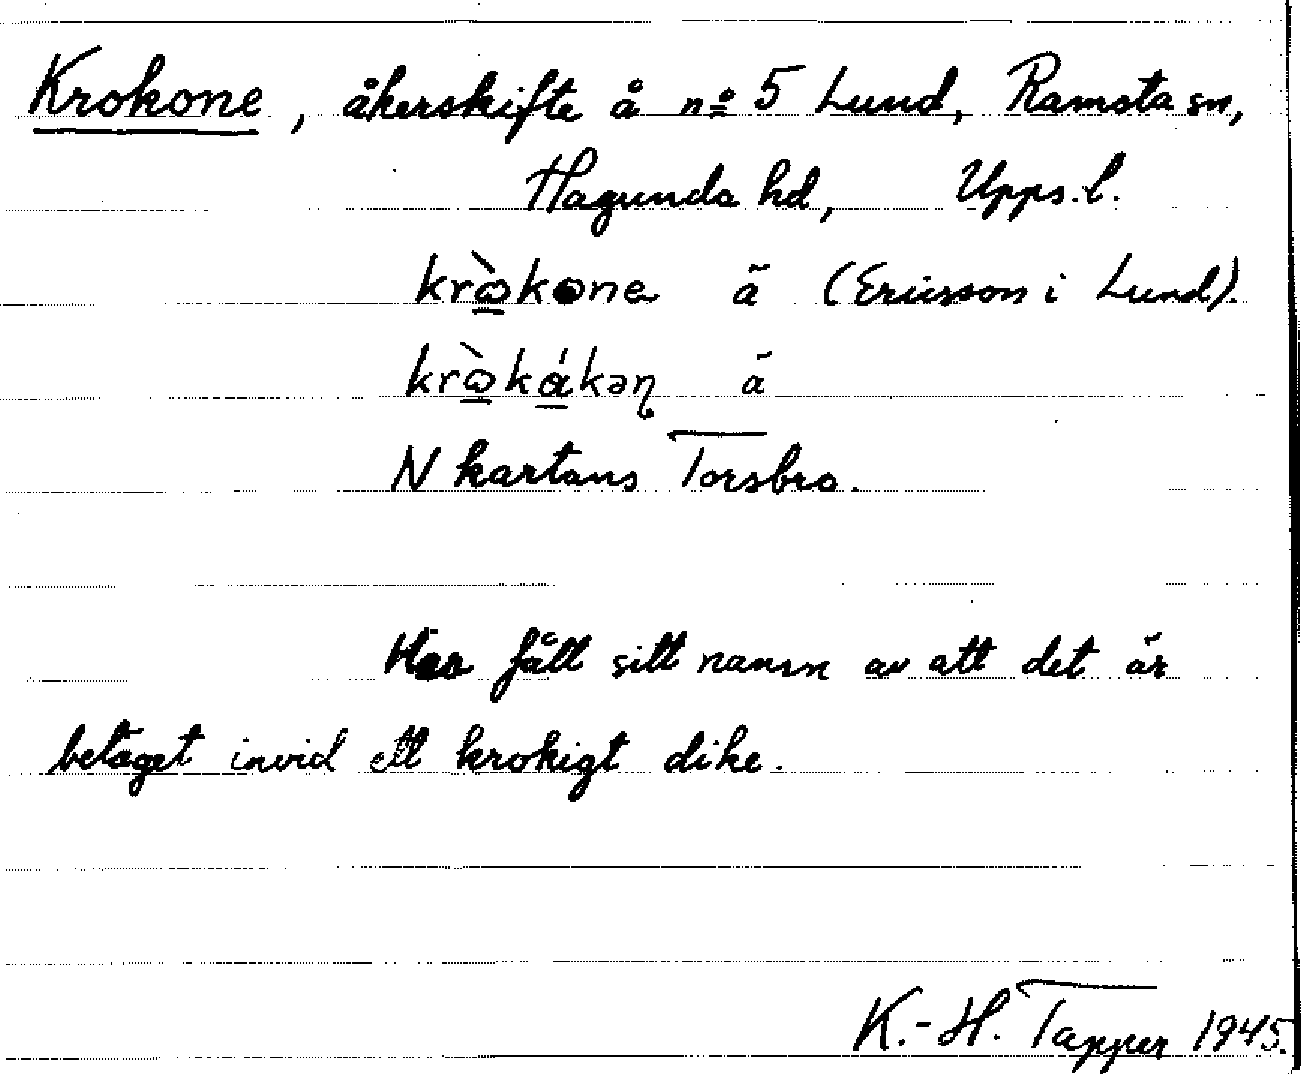 Krokone, åkerskifte å nº 5 Lund, Ramsta sn,
Hagunda hd, Upps. l.
krὼkωne ã (Ericsson i Lund).
krὼkάkəɳ ã
N kartans Torsbro.
Har fått sitt namn av att det är
beläget invid ett krokigt dike.
K.-H. Tapper 1945.